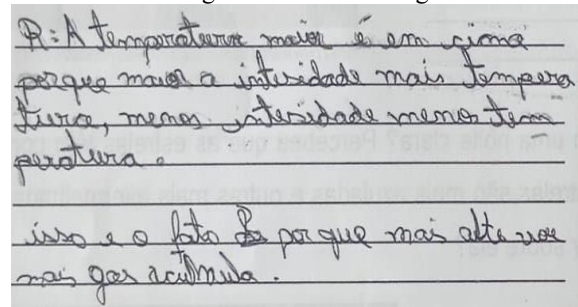 R: A temperatura maior é em cima
porque maior a intensidade mais tempera
tura, menos intesidade menos tem
peratura.
isso e o fato por que mais alto voe
mais gas acumula.